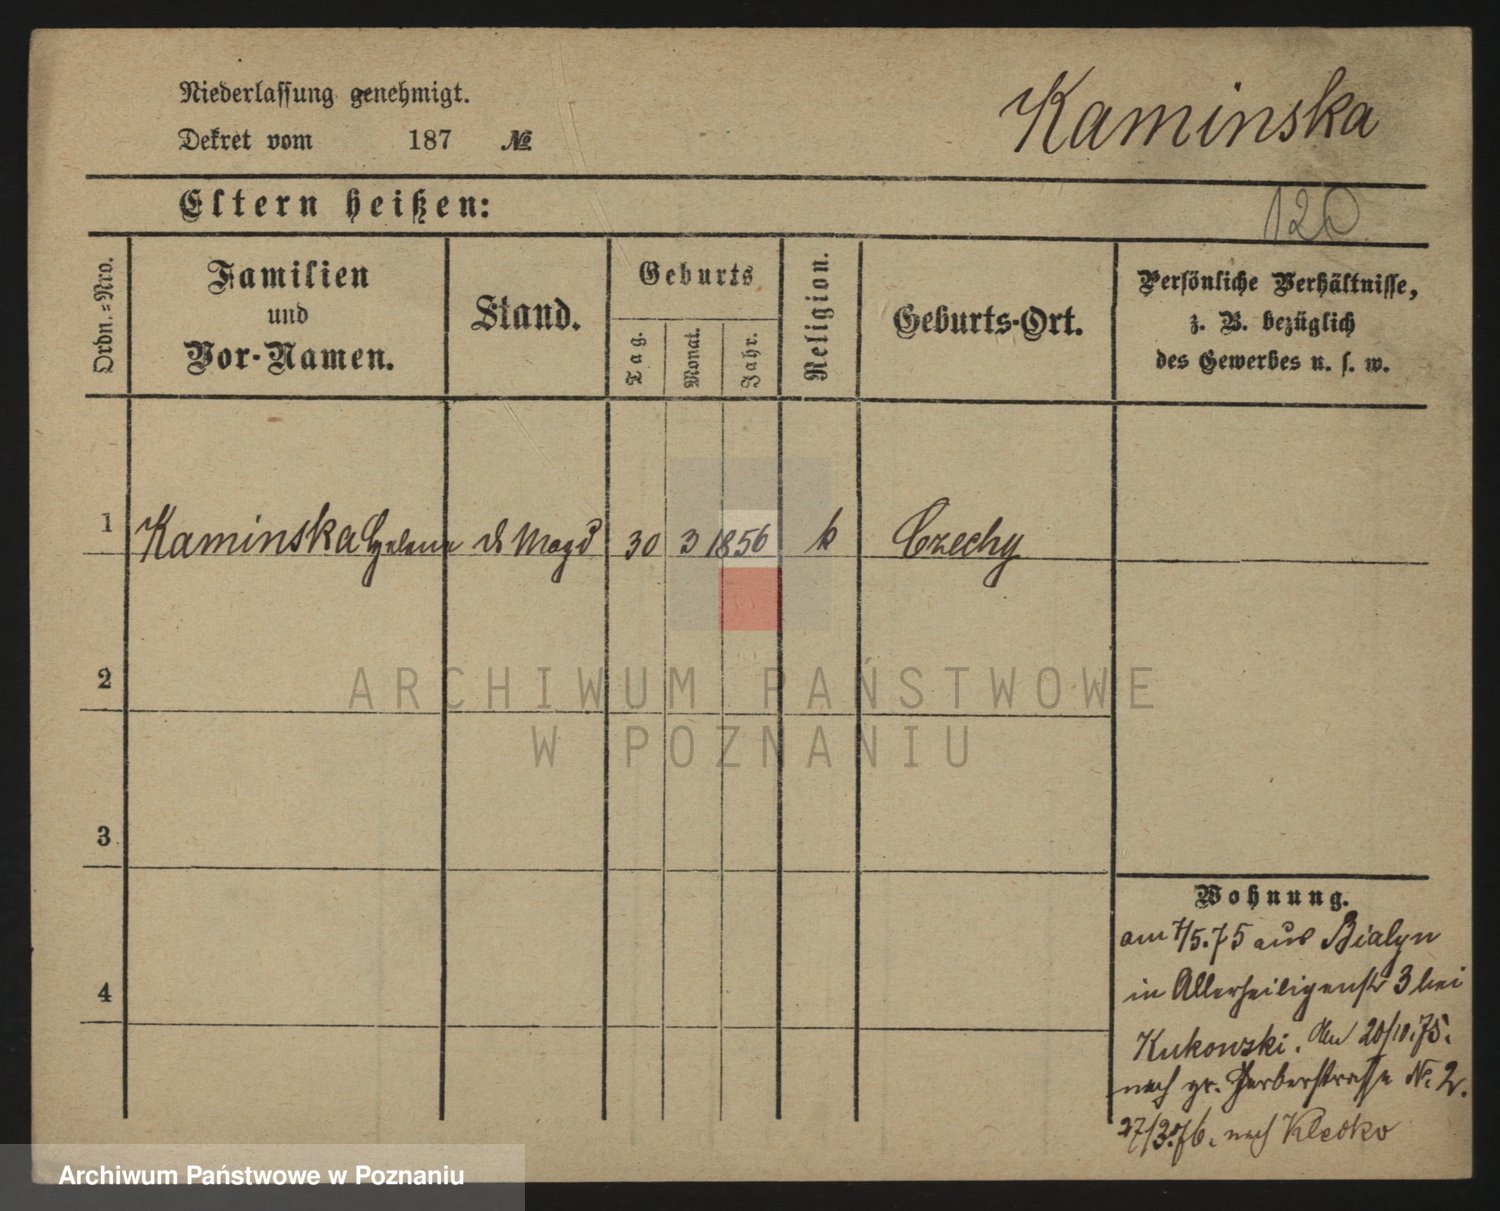 Niederlassung genehmigt.
Dekret vom 187 №
Kaminska
Eltern heißen:
120
Ordn.=Nro.
Familien
und
Vor-Namen.
Stand.
Geburts
Tag.
Monat.
Jahr.
Religion.
Geburts-Ort.
Persönliche Verhältnisse,
z. B. bezüglich
des Gewerbes u. s. w.
1 Kaminska Helene d Magd 30 3 1856 k Czechy
2
3
4
Wohnung.
am 7/5.75 aus Bialyn
in Allerheiligenstr 3 bei
Kukowski. Am 20/10.75.
nach gr. Gerberstrasse No. 2.
27/3.76. nach Kletzko
ARCHIWUM PAŃSTWOWE
W POZNANIU
Archiwum Państwowe w Poznaniu